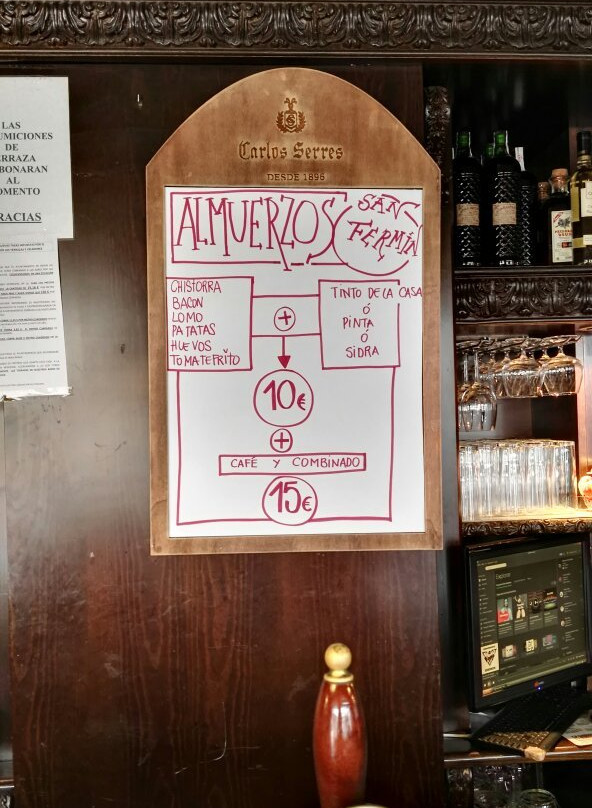 LAS
UMICIONES
DE
ERRAZA
BONARAN
AL
OMENTO
RACIAS
Carlos Serres
DESDE 1896
ALMUERZOS
SAN
FERMÍN
CHISTORRA
BACON
LOMO
PATATAS
HUEVOS
TOMATE FRITO
+
TINTO DE LA CASA
Ó
PINTA
Ó
SIDRA
10€
+
CAFÉ Y COMBINADO
15€